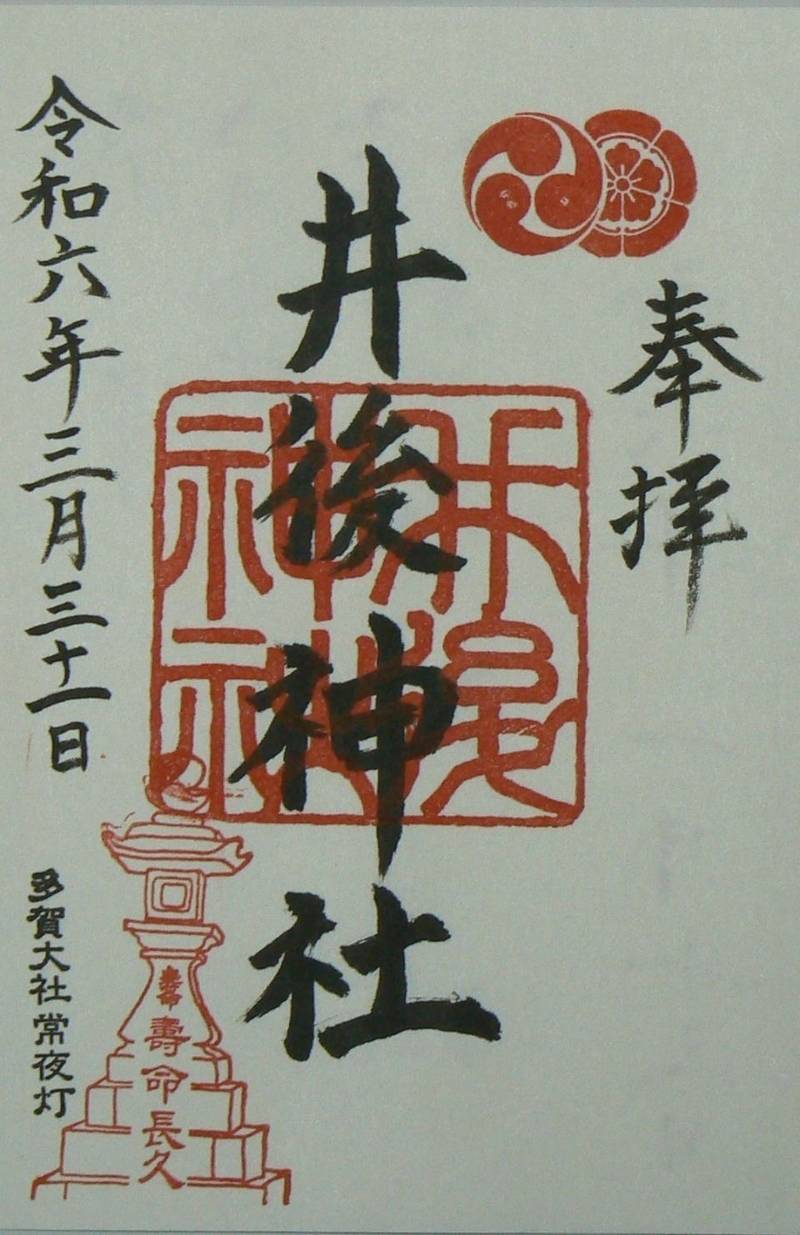 奉拝
井後神社
令和六年三月三十一日
壽命長久
多賀大社常夜灯